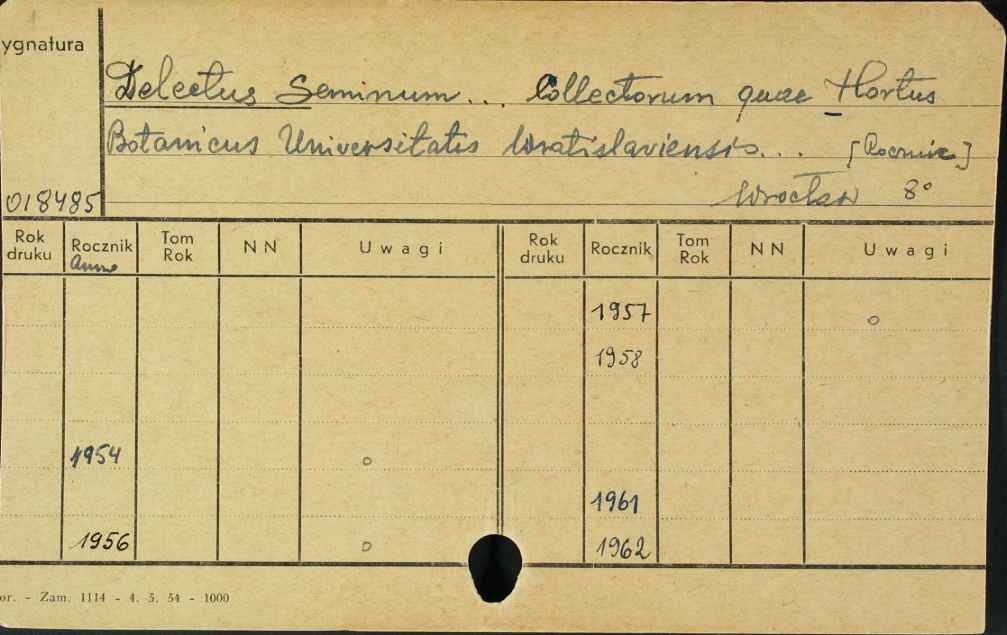 ygnatura
Delectus Seminum... Collectorum quae Hortus
Botanicus Universitatis Wratislaviensis... [Rocznik]
018485 Wrocław 8°
Rok druku Rocznik Anno Tom Rok NN Uwagi Rok druku Rocznik Tom Rok NN Uwagi
1957 o
1958
1954 o
1961
1956 o 1962
or. - Zam. 1114 - 4. 5. 54 - 1000